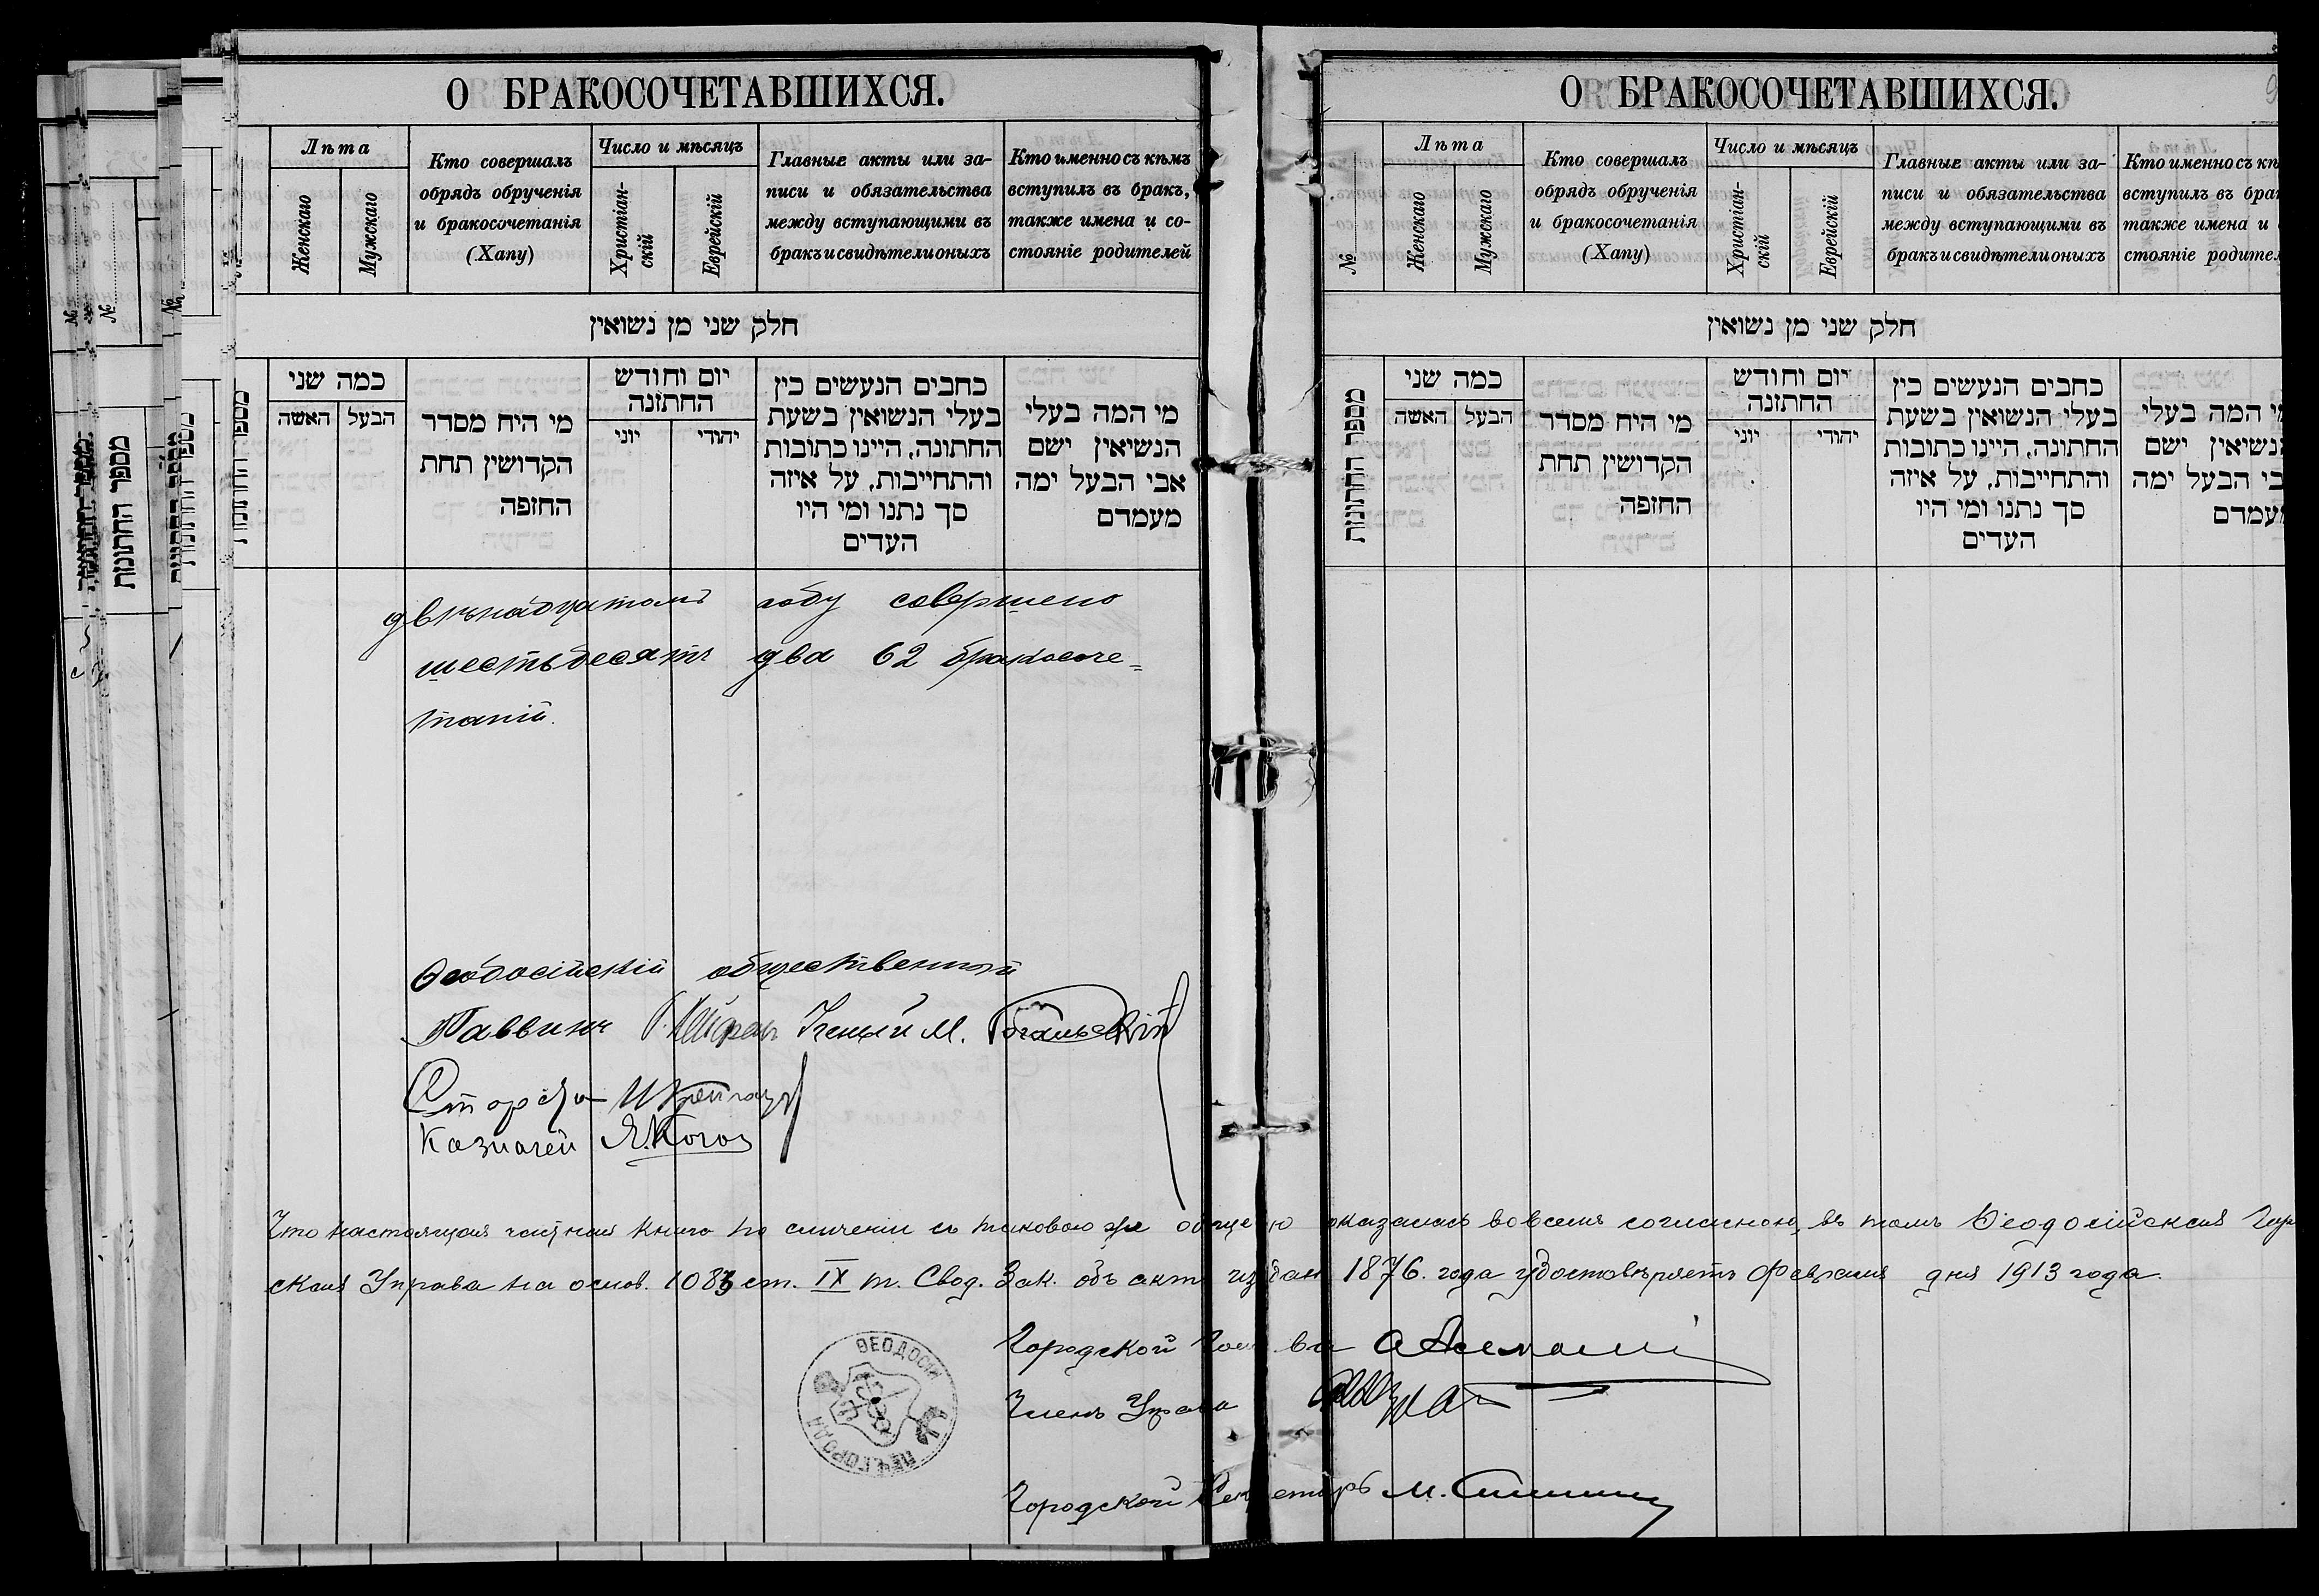 О БРАКОСОЧЕТАВШИХСЯ.
Лѣта
Женскаго
Мужскаго
Кто совершалъ
обрядъ обрученія
и бракосочетанія
(Хапу)
Число и мѣсяцъ
Христіан-
скій
Еврейскій
Главные акты или за-
писи и обязательства
между вступающими въ
бракъ и свидѣтели оныхъ
Кто именно съ кѣмъ
вступилъ въ бракъ,
также имена и со-
стояніе родителей
חלק שני מן נשואין
כמה שני
האשה
הבעל
מי היח מסדר
הקדושין תחת
החזפה
יום וחודש
החתזנה
יוני
יהודי
כחבים הנעשים כין
בעלי הנשואין בשעת
החתונה, היינו כתובות
והתחייבות, על איזה
סך נתנו ומי היו
העדים
מי המה בעלי
הנשיאין ישם
אבי הבעל ימה
מעמדם
двѣнадцатомъ году совершено
шестьдесятъ два 62 бракосоче=
таній.
Ѳеодосійскій общественный
Раввинъ Ученый М.
Староста
Казначей Я. Коген
Что настоящая частная книга по сличеніи съ таковою же общею оказалась во всемъ согласною, въ томъ Ѳеодосійская Город
ская Управа на основ. 1083 ст. IX т. Свод. Зак. объ акт. издан 1876. года удостовѣряетъ Февраля дня 1913 года.
Городской Голова
Членъ Управы
Городской Секретарь М.
ѲЕОДОСІЙ
ГОРОД
О БРАКОСОЧЕТАВШИХСЯ.
№
Лѣта
Женскаго
Мужскаго
Кто совершалъ
обрядъ обрученія
и бракосочетанія
(Хапу)
Число и мѣсяцъ
Христіан-
скій
Еврейскій
Главные акты или за-
писи и обязательства
между вступающими въ
бракъ и свидѣтели оныхъ
Кто именно съ кѣ
вступилъ въ бра
также имена и
стояніе родител
חלק שני מן נשואין
מספר החתונות
כמה שני
האשה
הבעל
מי היח מסדר
הקדושין תחת
החזפה
יום וחודש
החתזנה
יוני
יהודי
כחבים הנעשים כין
בעלי הנשואין בשעת
החתונה, היינו כתובות
והתחייבות, על איזה
סך נתנו ומי היו
העדים
מי המה בעלי
הנשיאין ישם
בי הבעל ימה
מעמדם